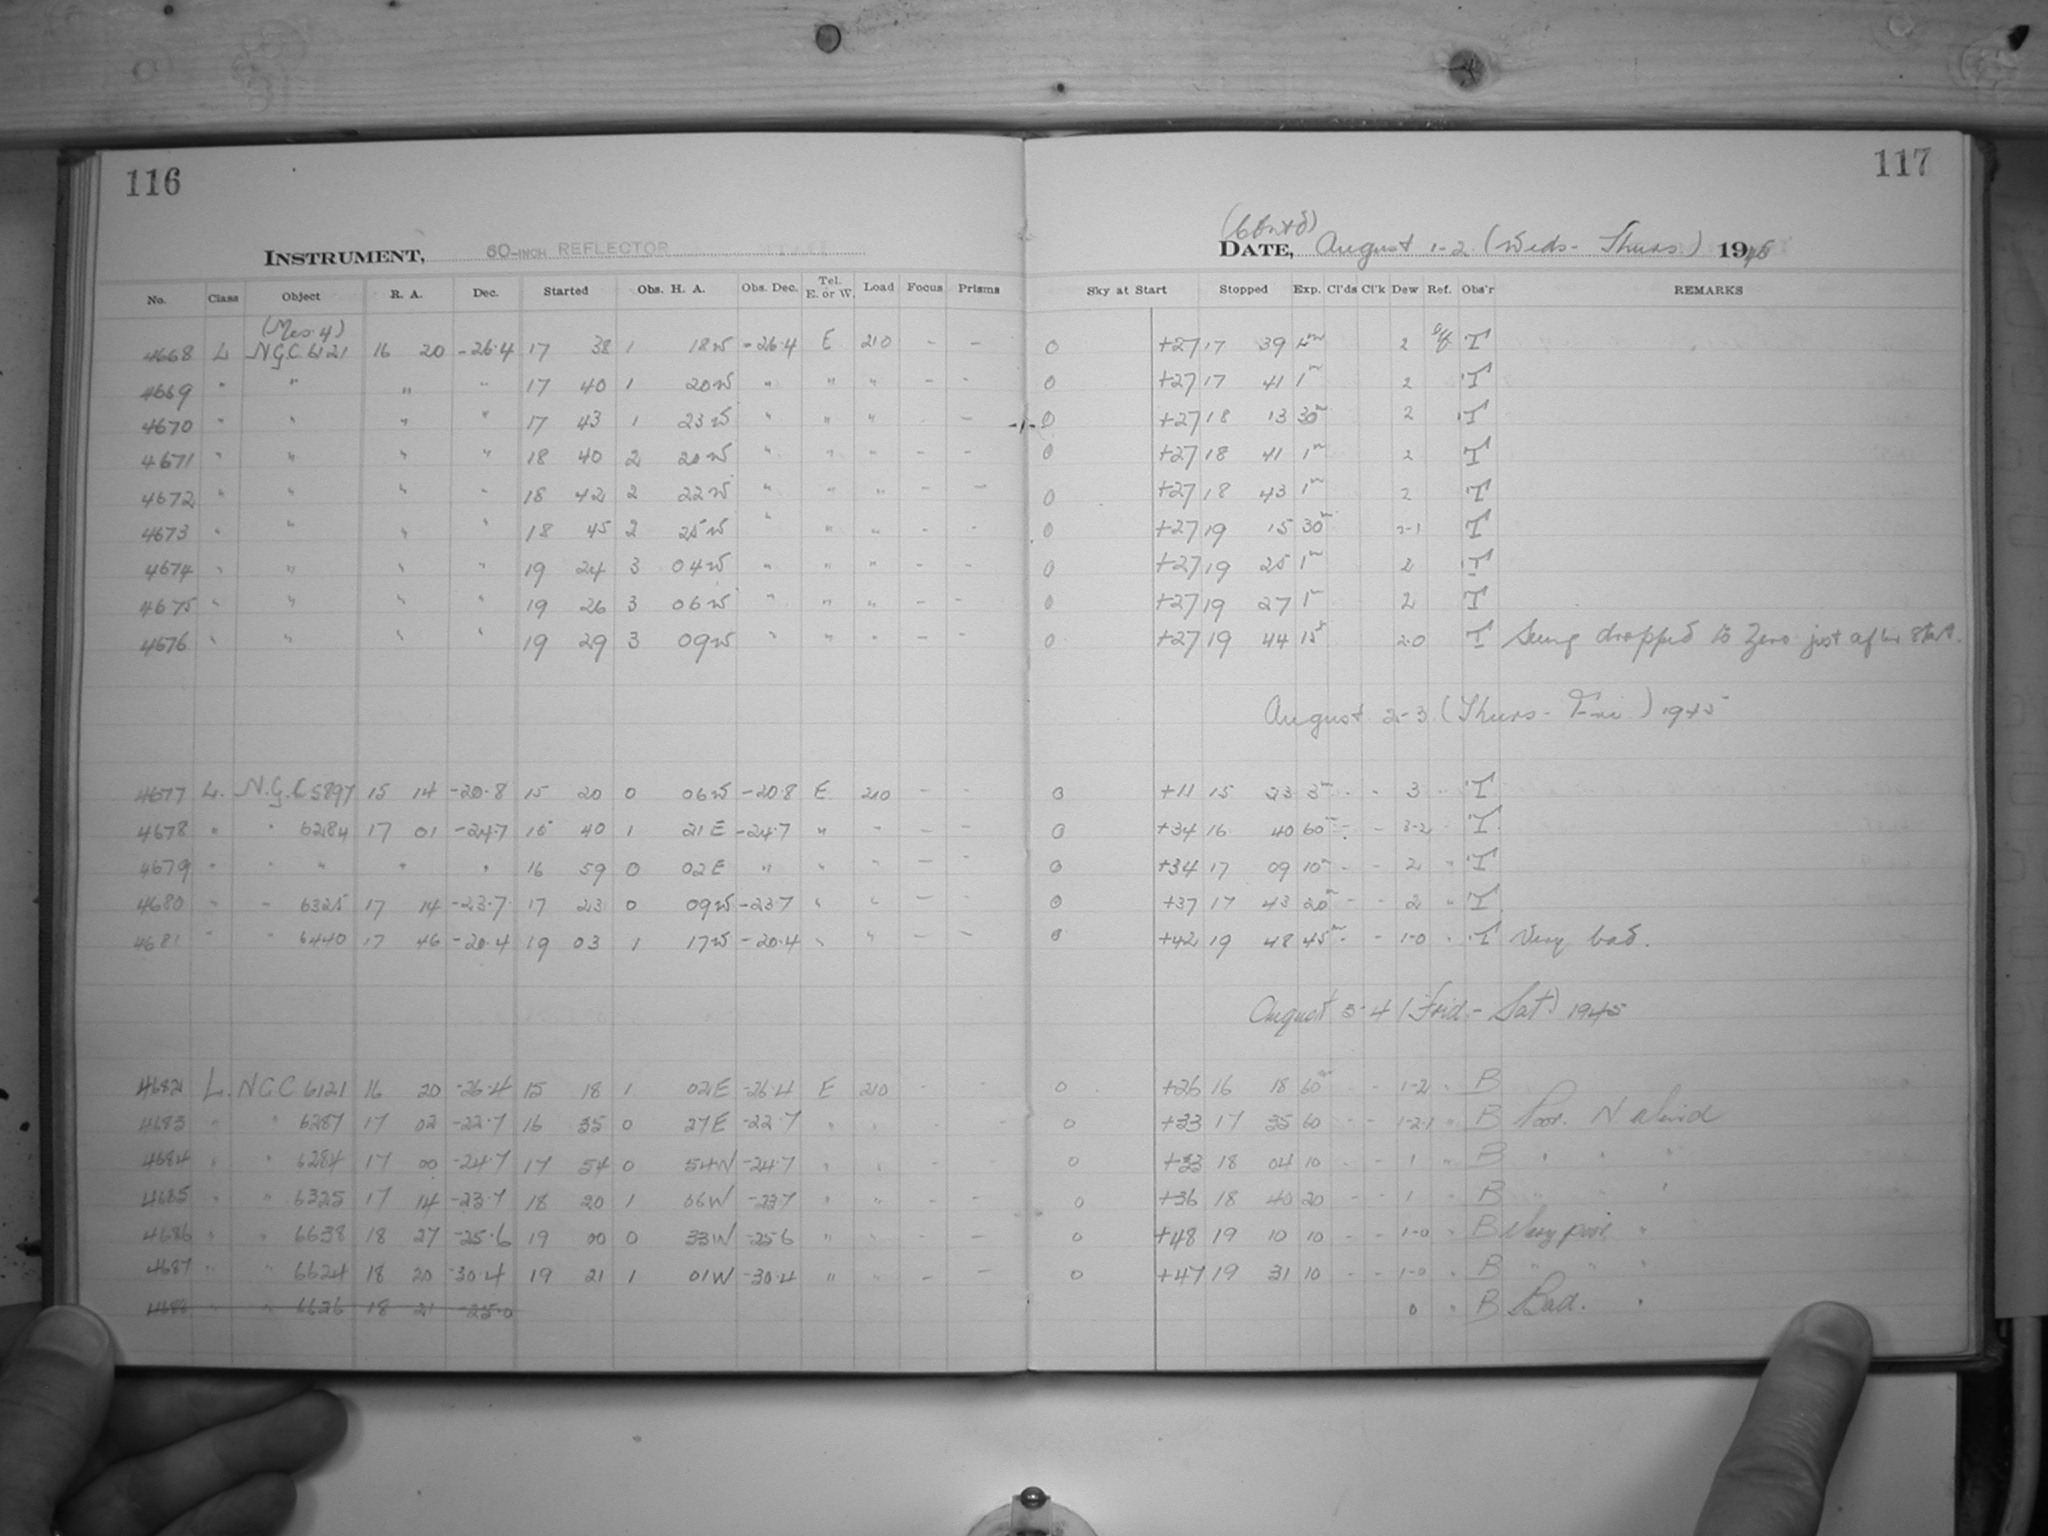 116
117
(Contd)
INSTRUMENT, 60-INCH REFLECTOR DATE, August 1-2 (Weds - Thurs.) 1945
No. Class Object R. A. Dec. Started Obs. H. A. Obs. Dec. Tel. E. or W. Load Focus Prisms Sky at Start Stopped Exp. Cl'ds Cl'k Dew Ref. Obs'r REMARKS
(Mes. 4)
4668 L NGC 6121 16 20 -26.4 17 38 1 18W -26.4 E 210 - - 0 +27 17 39 2 T
4669 " " " " 17 40 1 20W " " " - - 0 +27 17 41 1m 2 T
4670 " " " " 17 43 1 23W " " " - 0 +27 18 13 30m 2 T
4671 " " " " 18 40 2 20W " " " - - 0 +27 18 41 1m 2 T
4672 " " " " 18 42 2 22W " " " - - 0 +27 18 43 1m 2 T
4673 " " " " 18 45 2 25W " " " - - 0 +27 19 15 30m 2-1 T
4674 " " " " 19 24 3 04W " " " - - 0 +27 19 25 1m 2 T
4675 " " " " 19 26 3 06W " " " - - 0 +27 19 27 1m 2 T
4676 " " " " 19 29 3 09W " " " - - 0 +27 19 44 15 2-0 T Seeing dropped to Zero just after start.
August 2-3 (Thurs - Fri.) 1945
4677 L. N.G.C 5897 15 14 -20.8 15 20 0 06W -20.8 E 210 - - 0 +11 15 23 3m - - 3 " T
4678 " " 6284 17 01 -24.7 15 40 1 21E -24.7 " " - - 0 +34 16 40 60m - - 3-2 " T
4679 " " " " " 16 59 0 02E " " " - - 0 +34 17 09 10m - - 2 " T
4680 " " 6325 17 14 -23.7 17 23 0 09W -23.7 " " - - 0 +37 17 43 20m - - 2 " T
4681 " " 6440 17 46 -20.4 19 03 1 17W -20.4 " " - - 0 +42 19 48 45m - - 1-0 " T Very bad.
August 3-4 (Frid. - Sat.) 1945
4682 L. NGC 6121 16 20 -26.4 15 18 1 02E -26.4 E 210 - - 0 +26 16 18 60m - - 1-2 " B
4683 " " 6287 17 02 -22.7 16 35 0 27E -22.7 " " - - 0 +33 17 35 60 - - 1-2-1 " B Poor. N Wind
4684 " " 6284 17 00 -24.7 17 54 0 54W -24.7 " " - - 0 +33 18 04 10 - - 1 " B " " "
4685 " " 6325 17 14 -23.7 18 20 1 06W -23.7 " " - - 0 +36 18 40 20 - - 1 " B " " "
4686 " " 6638 18 27 -25.6 19 00 0 33W -25.6 " " - - 0 +48 19 10 10 - - 1-0 " B Very poor "
4687 " " 6624 18 20 -30.4 19 21 1 01W -30.4 " " - - 0 +47 19 31 10 - - 1-0 " B " " "
4688 " " 6626 18 21 -25.0 0 " B Bad. "